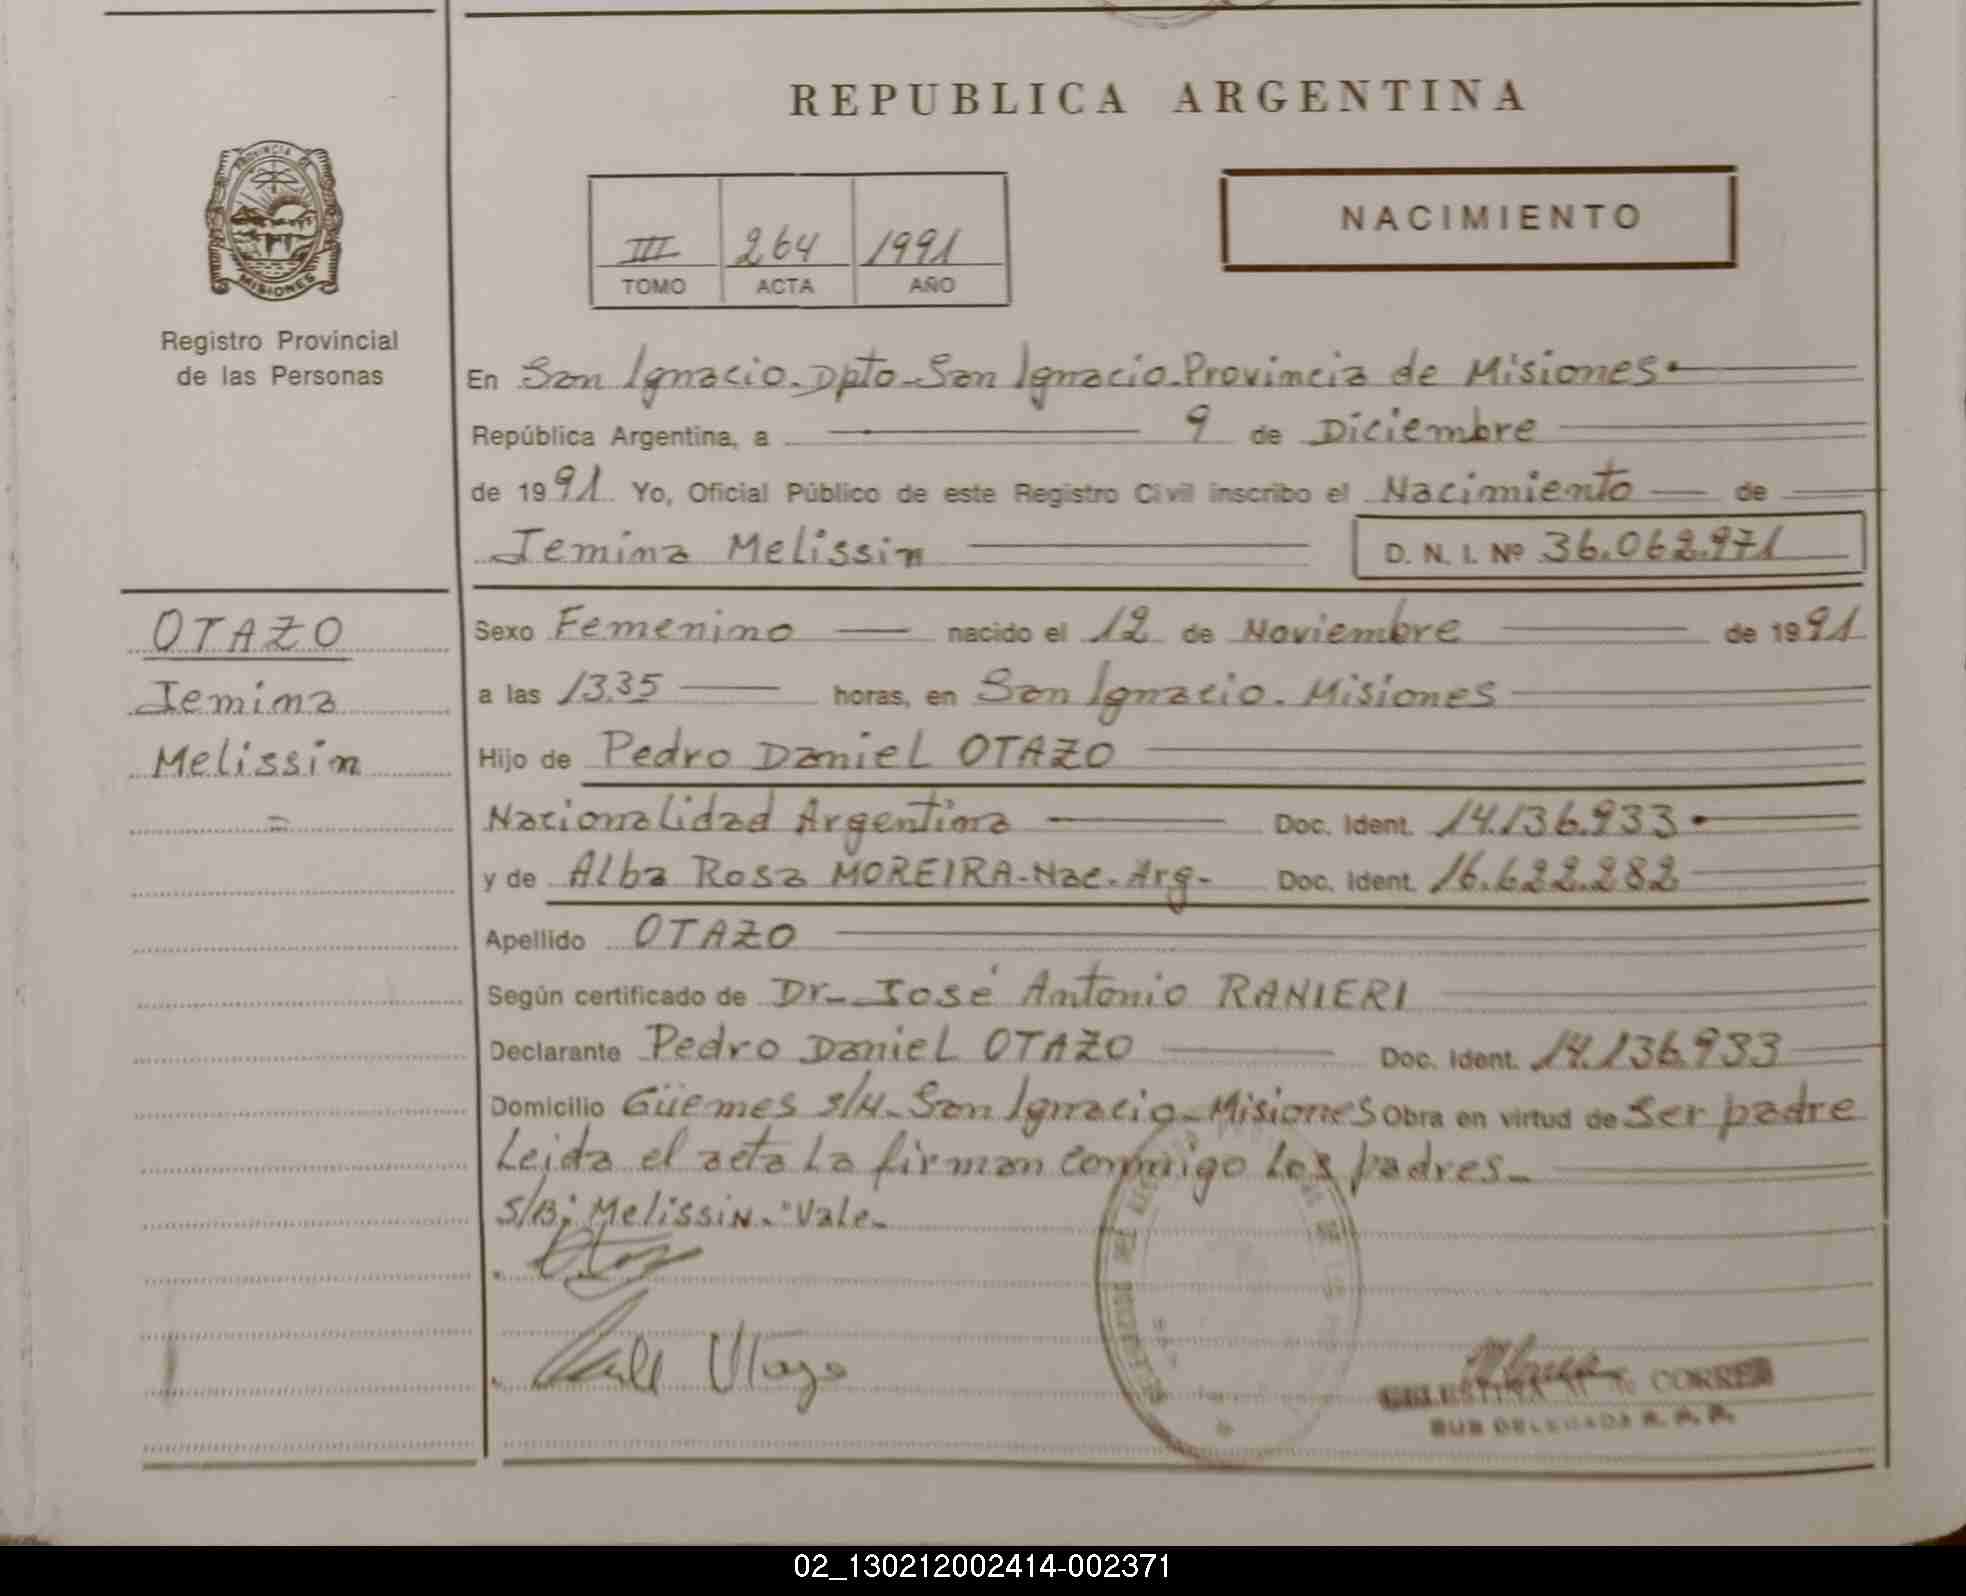 REPUBLICA ARGENTINA
PROVINCIA DE
MISIONES
Registro Provincial
de las Personas
III 264 1991
TOMO ACTA AÑO
NACIMIENTO
En San Ignacio. Dpto. San Ignacio. Provincia de Misiones.
República Argentina, a 9 de Diciembre
de 1991 Yo, Oficial Público de este Registro Civil inscribo el Nacimiento de
Jemina Melissin D. N. I. Nº 36.062.971
OTAZO
Jemina
Melissin
Sexo Femenino nacido el 12 de Noviembre de 1991
a las 13.35 horas, en San Ignacio. Misiones
Hijo de Pedro Daniel OTAZO
Nacionalidad Argentina Doc. Ident. 14.136.933.
y de Alba Rosa MOREIRA-Nac. Arg- Doc. Ident. 16.622.282
Apellido OTAZO
Según certificado de Dr- José Antonio RANIERI
Declarante Pedro Daniel OTAZO Doc. Ident. 14.136.933
Domicilio Güemes s/N- San Ignacio- Misiones Obra en virtud de Ser padre
Leida el acta La firman conmigo Los padres-
S/B: Melissin. "Vale-
CORREA
SUB DELEGADA
02_130212002414-002371